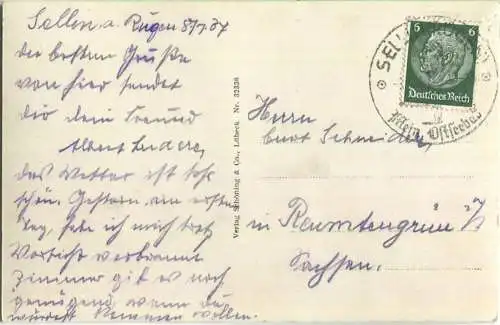 Sellin a. Rügen 8/7.37
die besten Grüße
von hier sendet
dir dein Freund
Albert
das Wetter ist sehr
schön. Gestern, am ersten
Tag, habe ich mich trotz
Vorsicht verbrannt
Zimmer gibt es noch
genügend, wenn du
kommen wollen.
Verlag Schöning & Co., Lübeck. Nr. 32338
Herrn
Curt Schneider,
in Raumtengrün i/V
Sachsen.
6 6
Deutsches Reich
SELL
Ostseebad